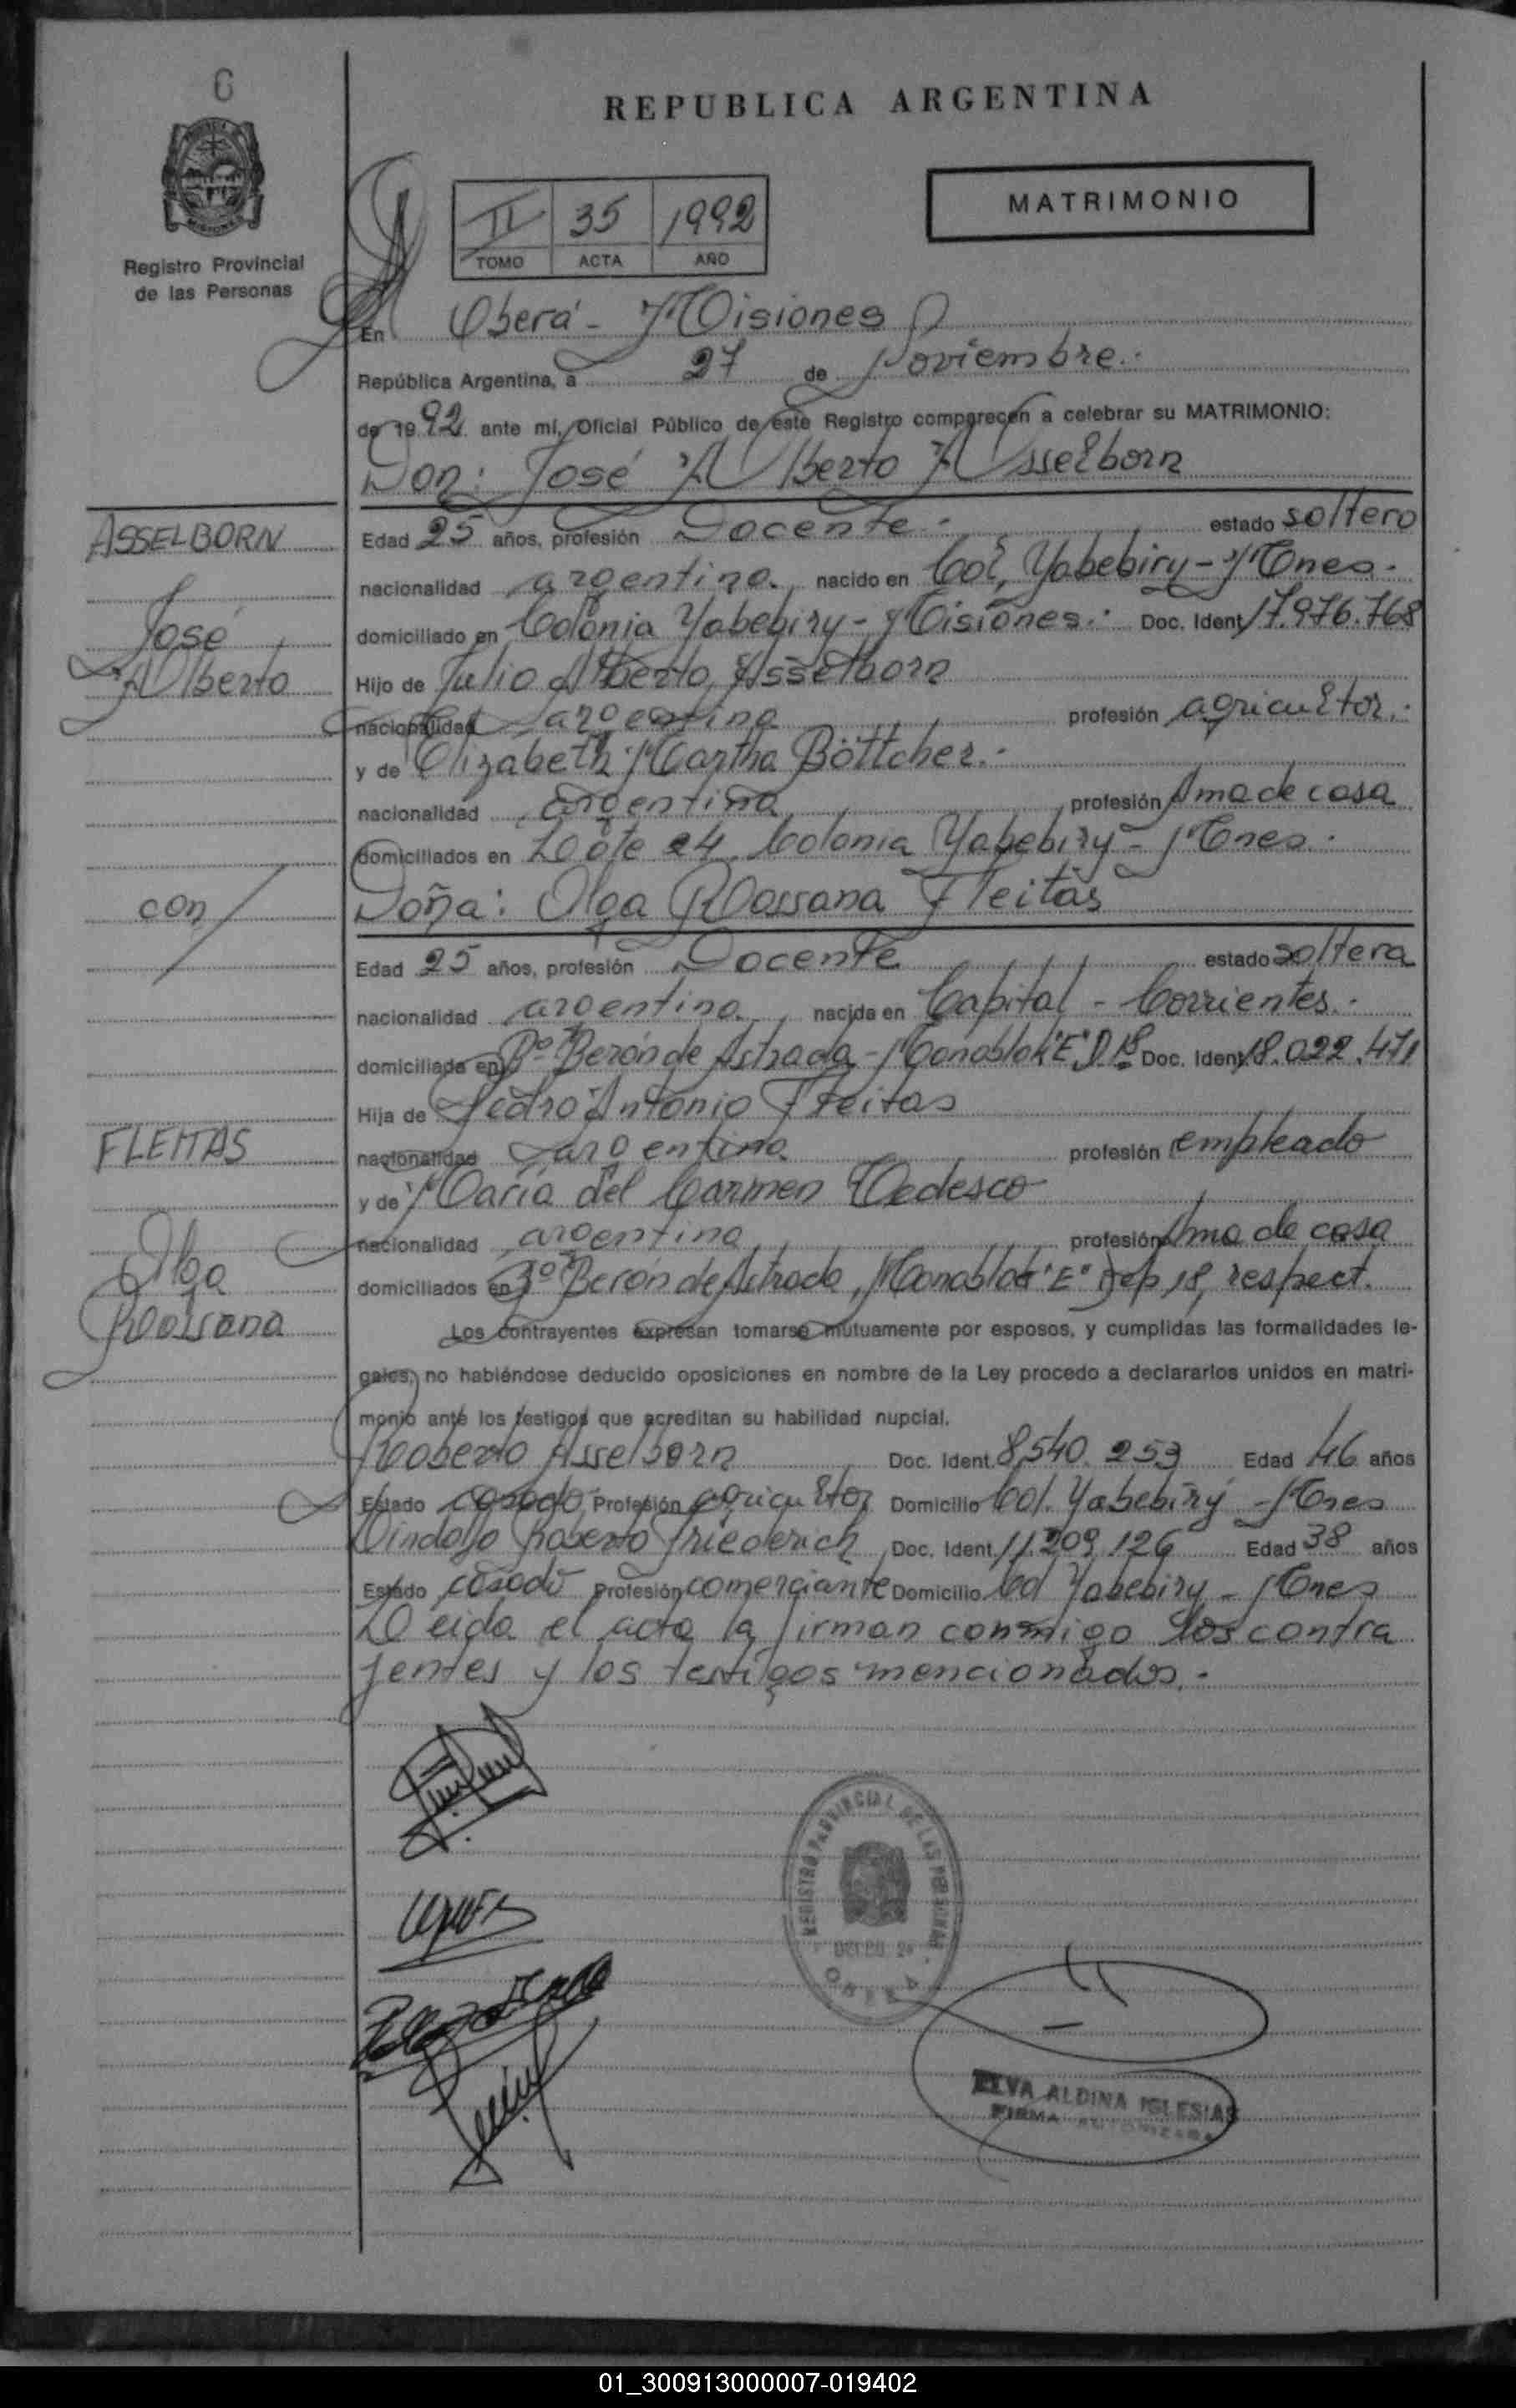 6
REPUBLICA ARGENTINA
MATRIMONIO
II 35 1992
TOMO ACTA AÑO
Registro Provincial
de las Personas
En Oberá - Misiones
República Argentina, a 27 de Noviembre.
de 1992 ante mí, Oficial Público de este Registro comparecen a celebrar su MATRIMONIO:
Don: José Alberto Asselborn
ASSELBORN
José
Alberto
Edad 25 años, profesión Docente. estado soltero
nacionalidad argentina. nacido en Col, Yabebiry - Mnes.
domiciliado en Colonia Yabebiry - Misiones. Doc. Ident. 17.976.768
Hijo de Julio Alberto Asselborn
nacionalidad argentina profesión agricultor.
y de Elizabeth Martha Böttcher.
nacionalidad argentina profesión Ama de casa
domiciliados en Lote 24. Colonia Yabebiry - Mnes.
con
Doña: Olga Rossana Fleitas
Edad 25 años, profesión Docente estado soltera
nacionalidad argentina. nacida en Capital - Corrientes.
domiciliada en Bº Berón de Astrada - Monoblok "E" D. 18 Doc. Ident. 18.022.471
Hija de Pedro Antonio Fleitas
FLEITAS
Olga
Rossana
nacionalidad argentina profesión empleado
y de María del Carmen Tedesco
nacionalidad argentina profesión Ama de casa
domiciliados en Bº Berón de Astrada, Monoblok "E" Dep 18, respect.
Los contrayentes expresan tomarse mutuamente por esposos, y cumplidas las formalidades le-
gales, no habiéndose deducido oposiciones en nombre de la Ley procedo a declararlos unidos en matri-
monio ante los testigos que acreditan su habilidad nupcial.
Roberto Asselborn Doc. Ident. 8.540.253 Edad 46 años
Estado casado Profesión agricultor Domicilio Col. Yabebiry - Mnes
Vindolfo Roberto Friederich Doc. Ident. 11.209.126 Edad 38 años
Estado casado Profesión comerciante Domicilio Col Yabebiry - Mnes
Leida el acta la firman conmigo los contra
yentes y los testigos mencionados.
REGISTRO PROVINCIAL DE LAS PERSONAS
OBERA
ELVA ALDINA IGLESIAS
FIRMA AUTORIZADA
01_300913000007-019402